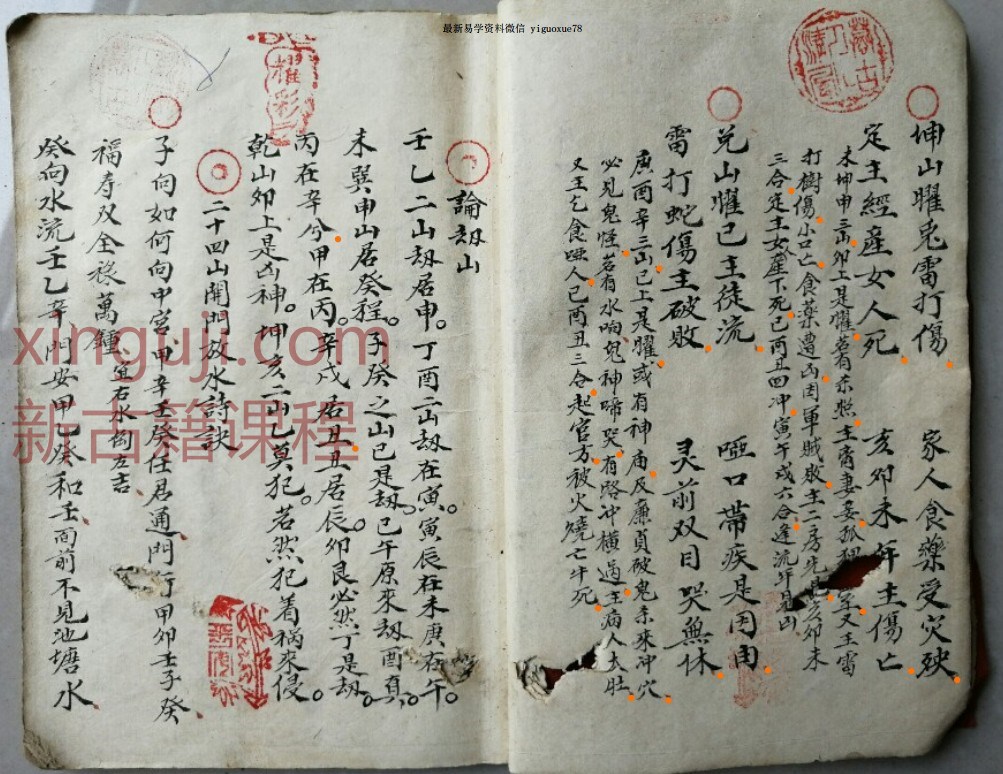 最新易学资料微信 yiguoxue78
坤山曜兎雷打傷 家人食藥受灾殃
定主經産女人死 亥卯未年主傷亡
未坤申三山卯上是曜若有杀照主商妻妾孤 又主雷
打樹傷小口亡食藥遭凶因軍賊敗主二房先見亥卯未
三合定主女産下死巳酉丑四冲寅午戌六合逢流年見凶
兑山曜巳主徒流 啞口帶疾是因由
雷打蛇傷主破敗 灵前双目哭無休
庚酉辛三山巳上是曜或有神庙及廉貞破鬼杀來冲穴
必見鬼怪若有水响鬼神啼哭有路冲橫過主病人大肚
又主乞食啞人巳酉丑三合起官方被火燒亡牛死
論刼山
壬乙二山刼居申。丁酉二山刼在寅寅辰在未庚在午。
未巽申山居癸程。子癸之山巳是刼。巳午原來刼酉真。
丙在辛分甲在丙。辛戌居丑丑居辰。卯艮必然丁是刼。
乾山卯上是凶神。坤亥二山乙莫犯。若然犯着禍來侵。
二十四山開門放水詩訣
子向如何向中宫甲辛壬癸任君通門行甲卯壬子癸
福寿双全祿萬鍾 宜右水倒左吉
癸向水流壬乙辛門安甲乙癸和壬面前不見池塘水
xinguji.com
新古籍课程